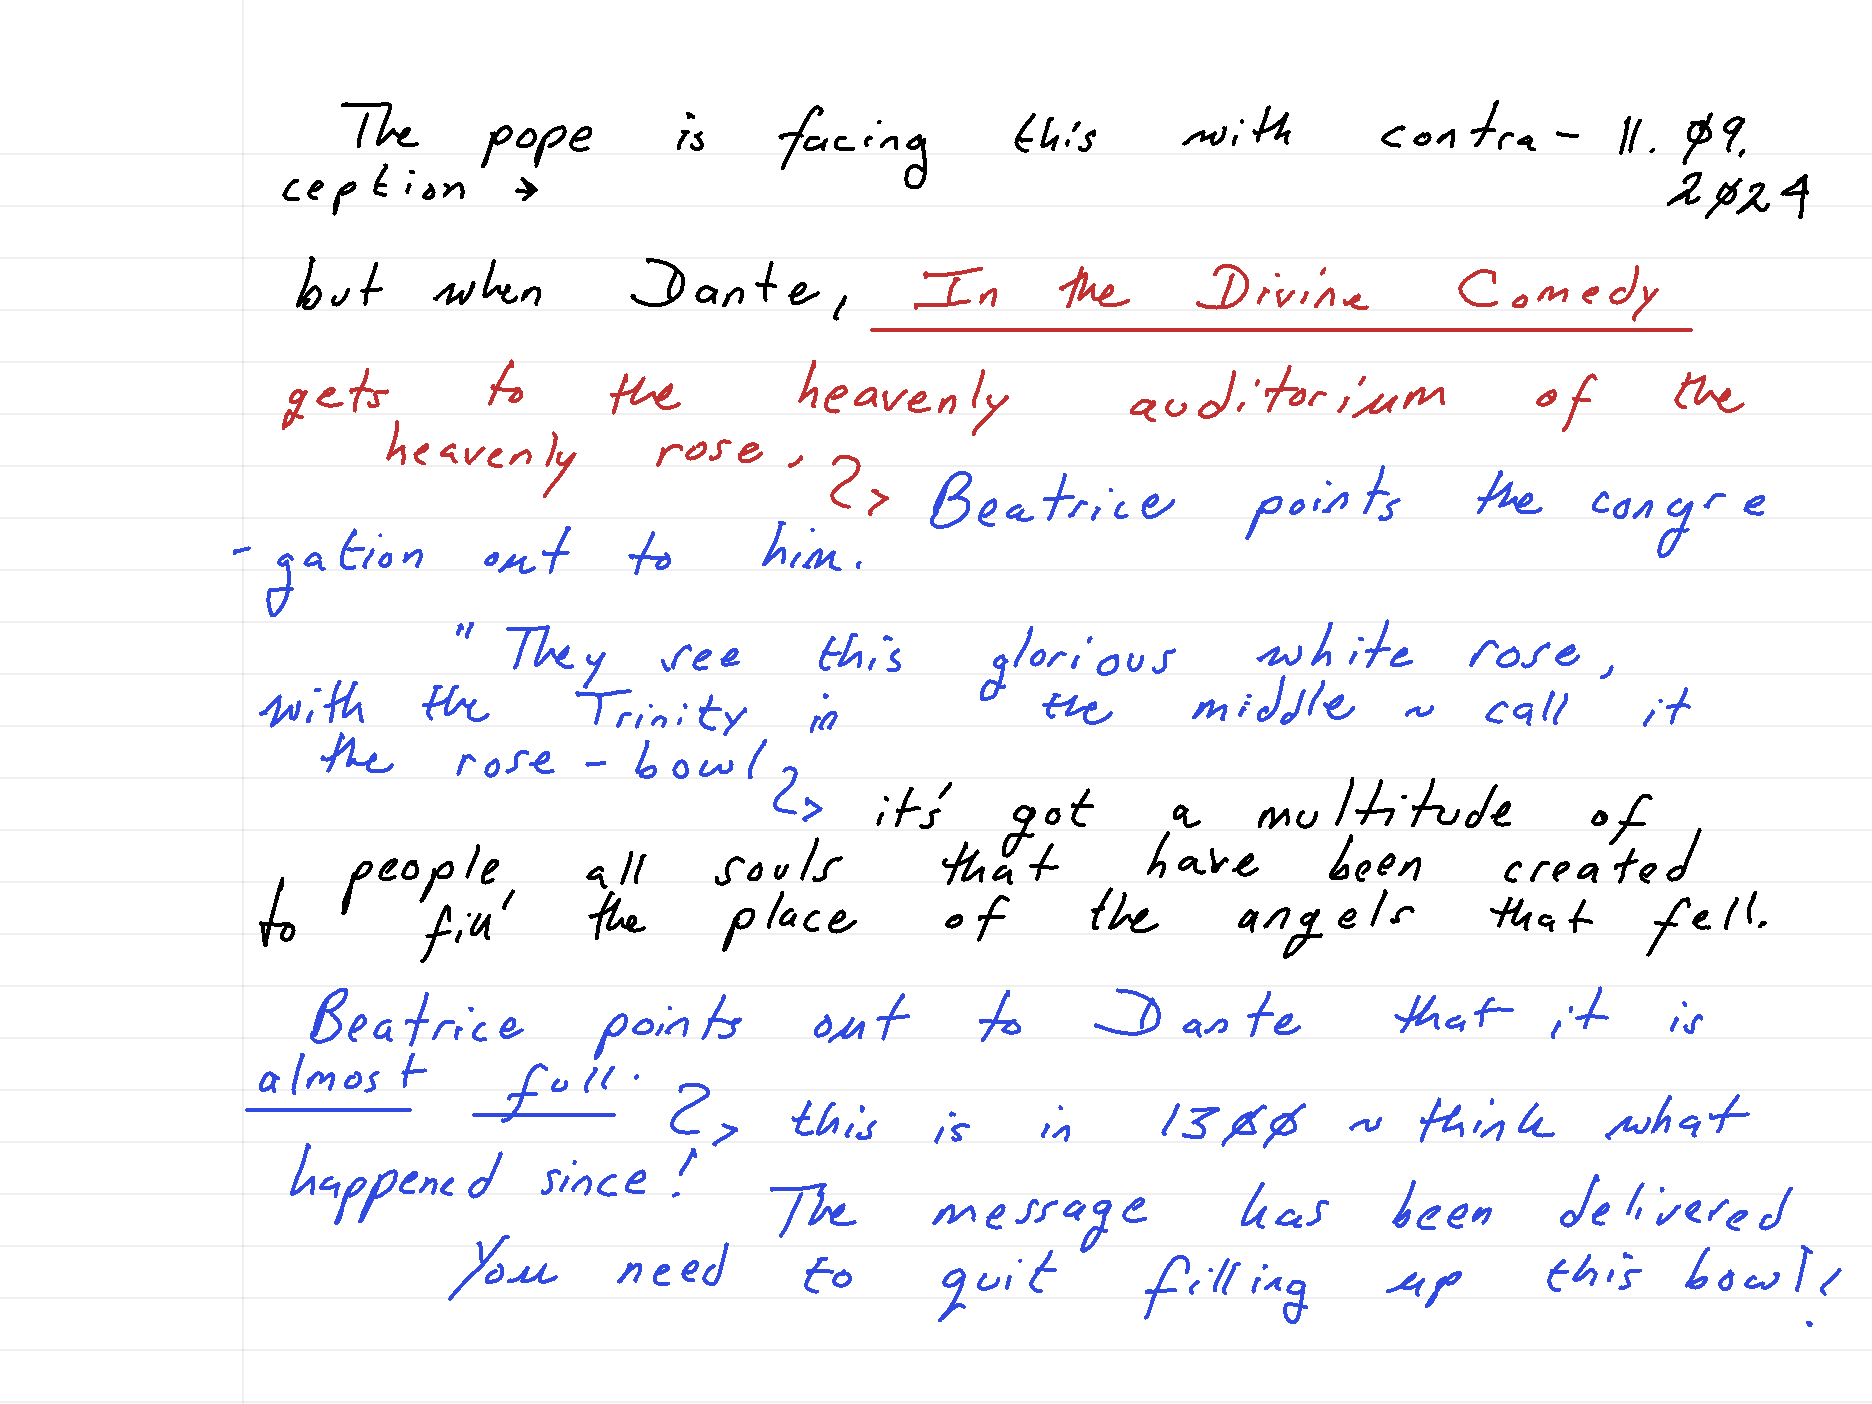 The pope is facing this with contra- 11. Ø9.
ception → 2Ø24
but when Dante, In the Divine Comedy
gets to the heavenly auditorium of the
heavenly rose,
Beatrice points the congre
-gation out to him.
"They see this glorious white rose,
with the Trinity in the middle ~ call it
the rose-bowl
it's got a multitude of
people, all souls that have been created
to fill the place of the angels that fell.
Beatrice points out to Dante that it is
almost full.
this is in 13ØØ ~ think what
happened since!
The message has been delivered
You need to quit filling up this bowl!